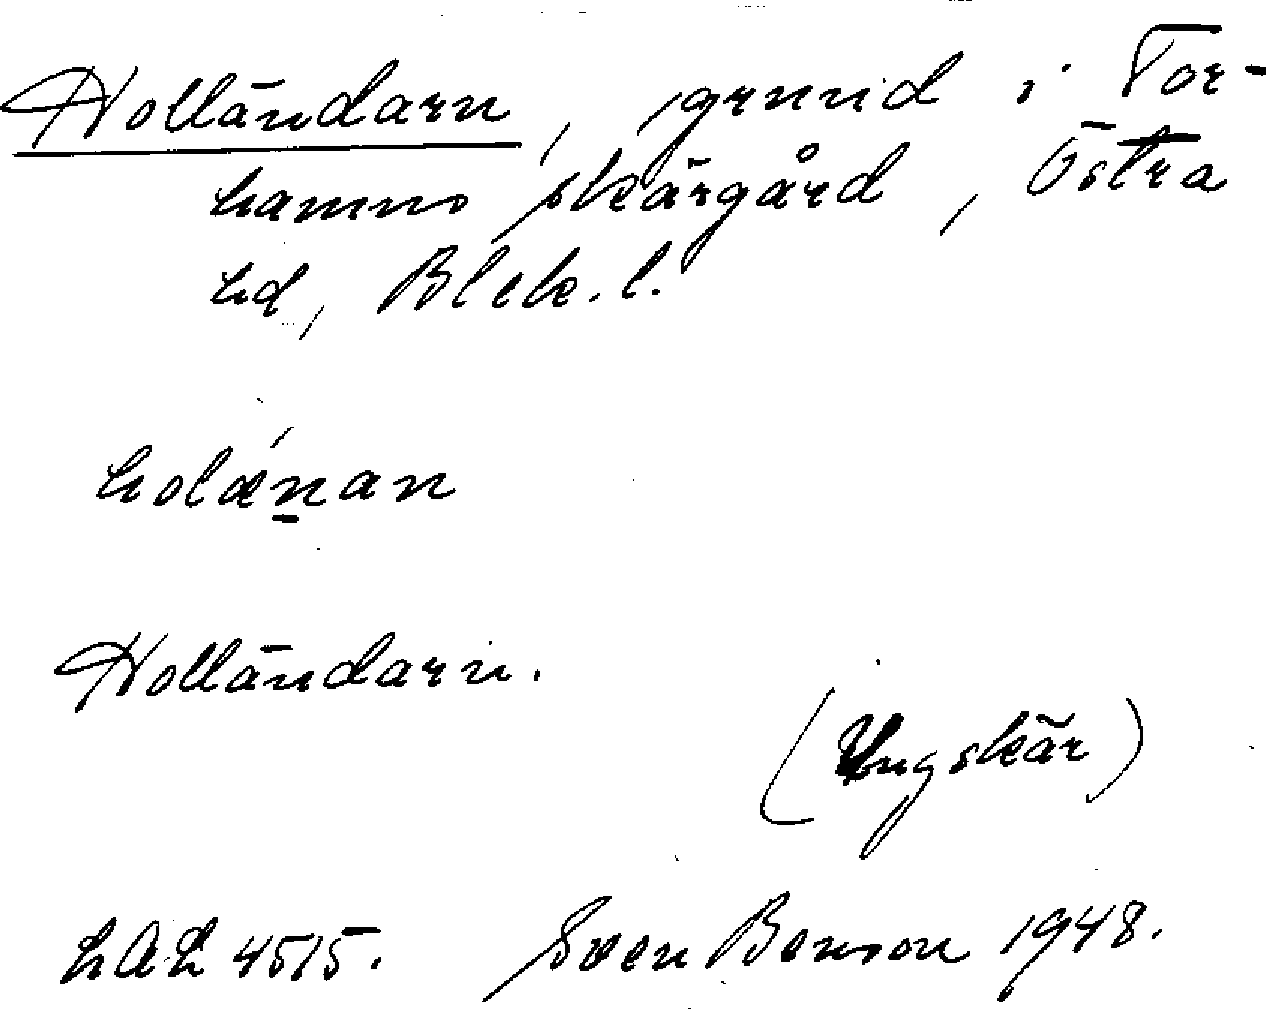 Holländarn, grund i Tor-
hamns skärgård, Östra
hd, Blek. l.
holǽn̲an
Holländarn.
(Ungskär)
LAL 4515. Sven Benson 1948.